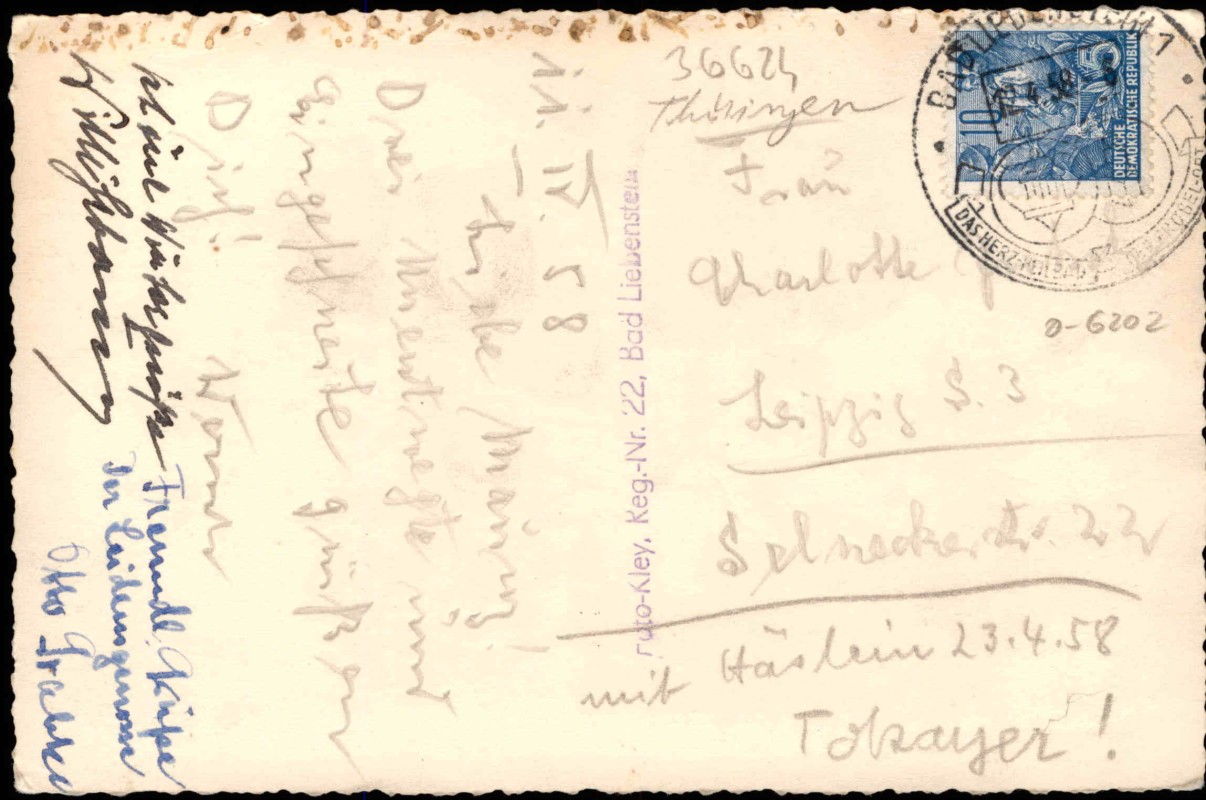 21. IV. 58
Liebe Mausi!
Drei Unentwegte und
Eingeschneite grüßen
Dich!
Werner
Willi
Freundl. Grüße
Der Leidensgenosse
Otto
Foto-Kley, Keg.-Nr. 22, Bad Liebenstein
36624
Thüringen
Frau
Charlotte
D-6202
Leipzig S. 3
Selneckerstr. 22
mit Häslein 23.4.58
Tokayer!
BAD LIEBENSTEIN
22.4.58
DAS HERZ-HEILBAD
10
5
DEUTSCHE
DEMOKRATISCHE REPUBLIK